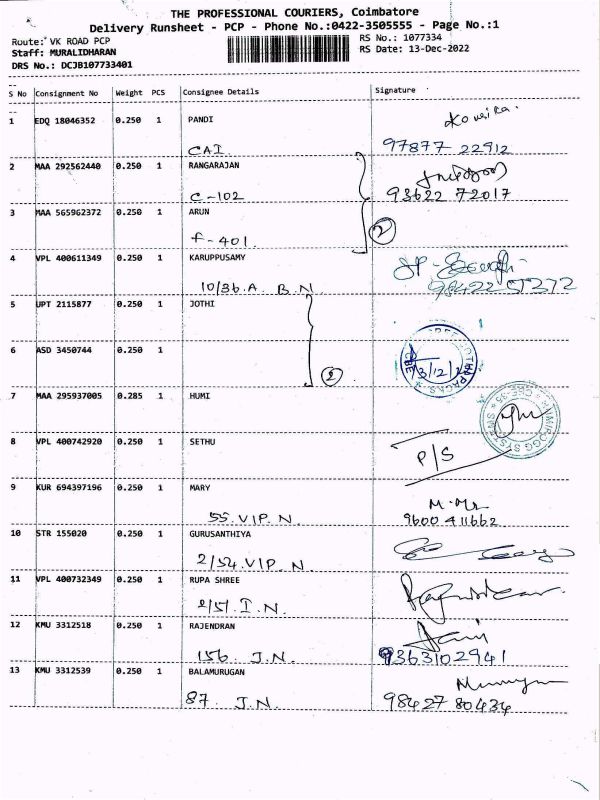 THE PROFESSIONAL COURIERS, Coimbatore
Delivery Runsheet - PCP - Phone No.:0422-3505555 - Page No.:1
Route: VK ROAD PCP
RS No.: 1077334
Staff: MURALIDHARAN
RS Date: 13-Dec-2022
DRS No.: DCJB107733401
S No Consignment No Weight PCS Consignee Details Signature
1 EDQ 18046352 0.250 1 PANDI
CAI 97877 22912
2 MAA 292562440 0.250 1 RANGARAJAN
C-102 93622 72017
3 MAA 565962372 0.250 1 ARUN
f-401. 2
4 VPL 400611349 0.250 1 KARUPPUSAMY
10/36.A. B.N.
5 UPT 2115877 0.250 1 JOTHI
6 ASD 3450744 0.250 1
2
7 MAA 295937005 0.285 1 HUMI
8 VPL 400742920 0.250 1 SETHU
P/S
9 KUR 694397196 0.250 1 MARY
55.VIP.N. 9600 411662
10 STR 155020 0.250 1 GURUSANTHIYA
2/54.VIP.N.
11 VPL 400732349 0.250 1 RUPA SHREE
2/51.I.N.
12 KMU 3312518 0.250 1 RAJENDRAN
156 J.N. 9363102941
13 KMU 3312539 0.250 1 BALAMURUGAN
87. J.N. 98427 80434